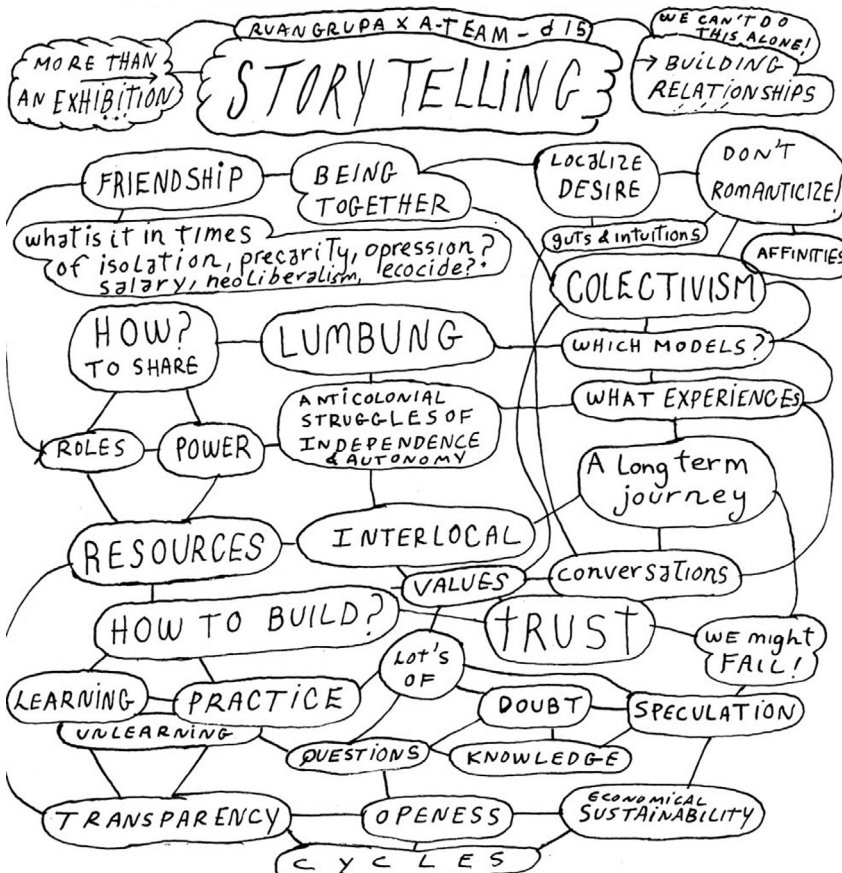 RUANGRUPA X A-TEAM - d15
MORE THAN
AN EXHIBITION
STORY TELLING
WE CAN'T DO
THIS ALONE!
→ BUILDING
RELATIONSHIPS
FRIENDSHIP
BEING
TOGETHER
LOCALIZE
DESIRE
DON'T
ROMANTICIZE!
what is it in times
of isolation, precarity, opression?
salary, neoliberalism, ecocide?
guts & intuitions
AFFINITIES
COLECTIVISM
HOW?
TO SHARE
LUMBUNG
WHICH MODELS?
WHAT EXPERIENCES
ANTICOLONIAL
STRUGGLES OF
INDEPENDENCE
& AUTONOMY
ROLES
POWER
A Long term
journey
RESOURCES
INTERLOCAL
VALUES
conversations
HOW TO BUILD?
TRUST
WE might
FAIL!
LOT'S
OF
LEARNING
PRACTICE
UNLEARNING
DOUBT
SPECULATION
QUESTIONS
KNOWLEDGE
TRANSPARENCY
OPENESS
ECONOMICAL
SUSTAINABILITY
CYCLES